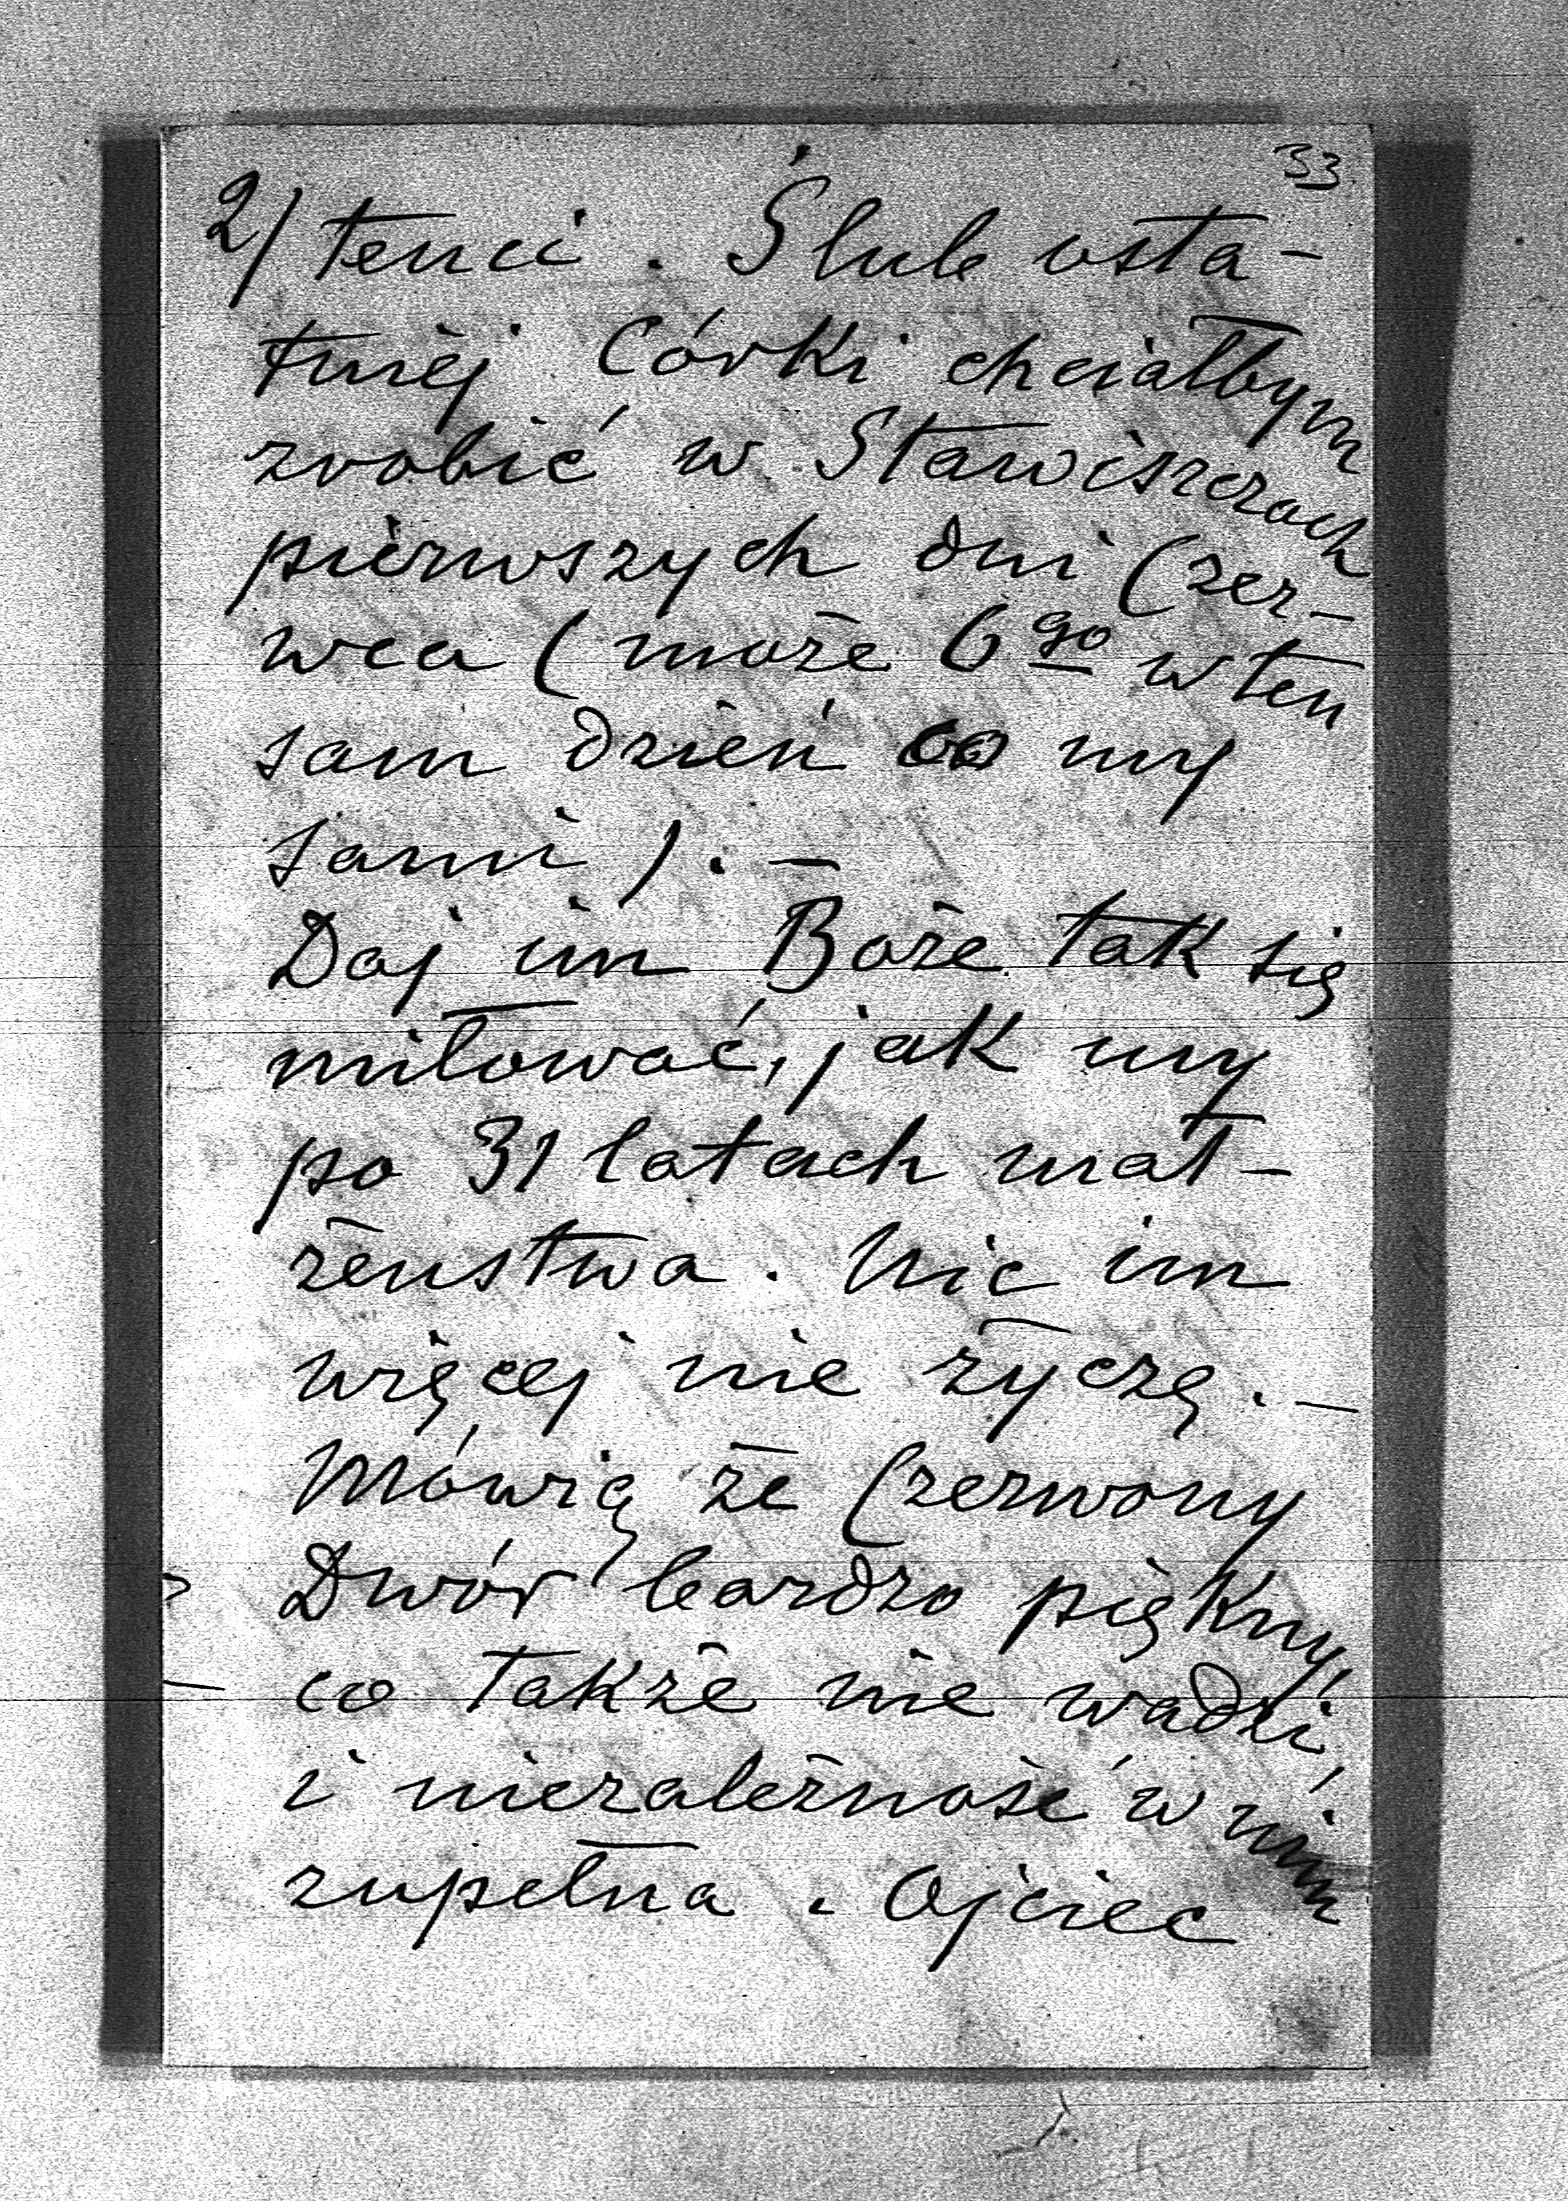 33
2/ tenci. Ślub osta-
tniéj Córki chciałbym
zrobić w Stawiszczach
pierwszych dni Czer-
wca (może 6go w ten
sam dzień co my
sami). —
Daj im Boże tak się
miłować, jak my
po 31 latach mał-
żeństwa. Nic im
więcej nie życzę. —
Mówią że Czerwony
Dwór bardzo piękny,
co także nie wadzi,
i niezależność w nim
zupełna. Ojciec